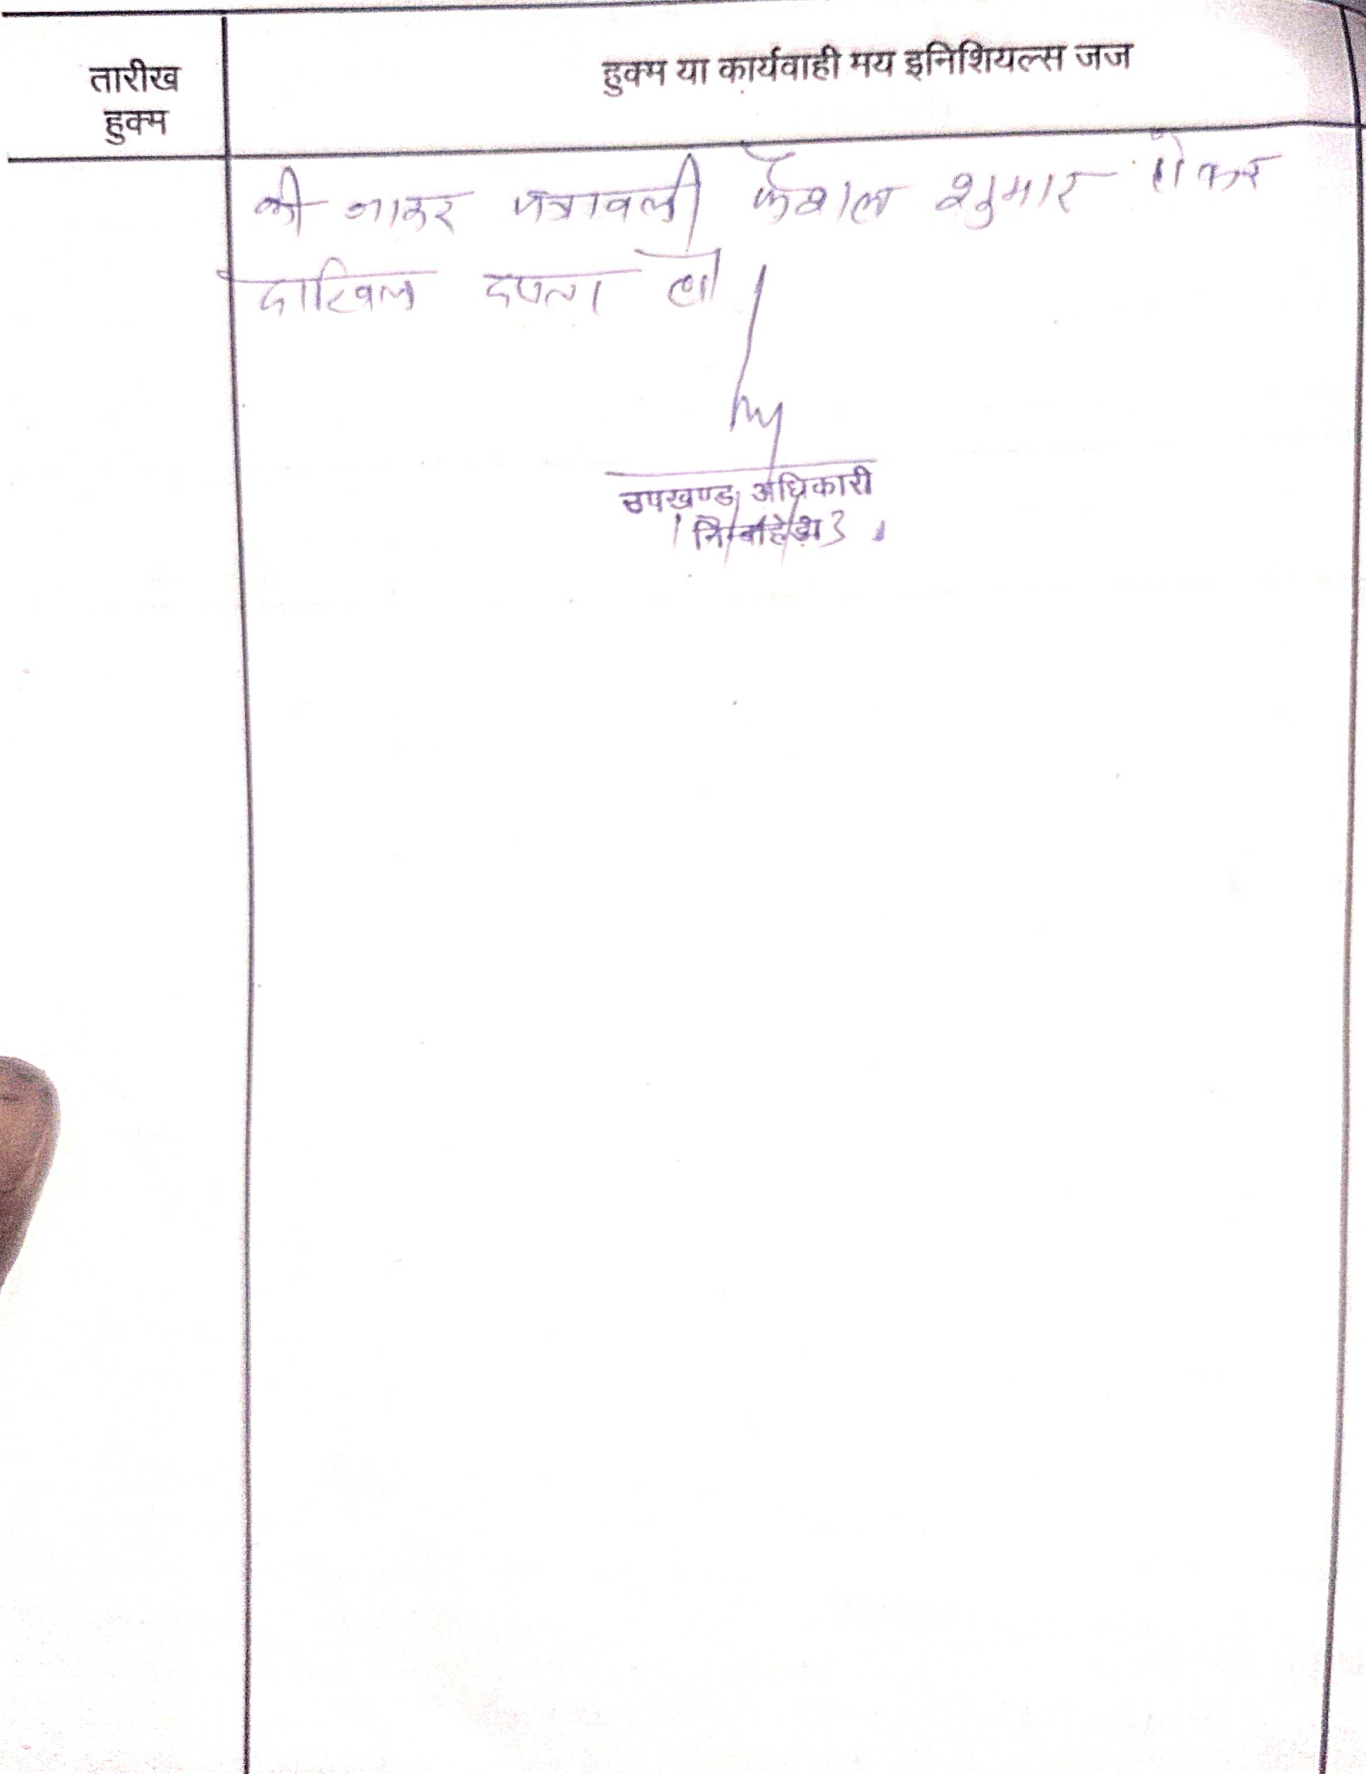 तारीख
हुक्म
हुक्म या कार्यवाही मय इनिशियल्स जज
की जाकर पत्रावली फैसल शुमार होकर
दाखिल दफ्तर हो।
उपखण्ड अधिकारी
निम्बाहेड़ा